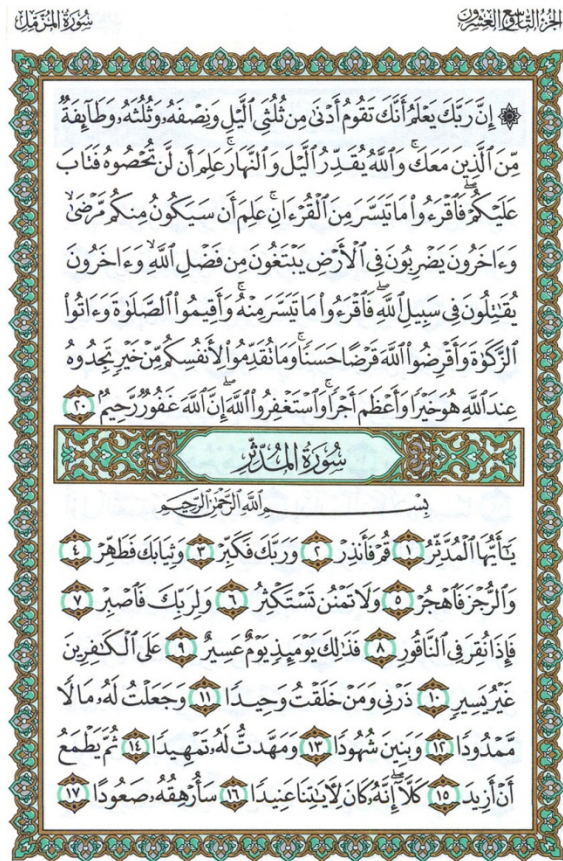 سُورَةُ المُزَّمِّلِ
الجُزْءُ التَّاسِعُ وَالعِشْرُونَ
۞ إِنَّ رَبَّكَ يَعْلَمُ أَنَّكَ تَقُومُ أَدْنَىٰ مِن ثُلُثَىِ ٱلَّيْلِ وَنِصْفَهُۥ وَثُلُثَهُۥ وَطَآئِفَةٌ
مِّنَ ٱلَّذِينَ مَعَكَۚ وَٱللَّهُ يُقَدِّرُ ٱلَّيْلَ وَٱلنَّهَارَۚ عَلِمَ أَن لَّن تُحْصُوهُ فَتَابَ
عَلَيْكُمْۖ فَٱقْرَءُوا۟ مَا تَيَسَّرَ مِنَ ٱلْقُرْءَانِۚ عَلِمَ أَن سَيَكُونُ مِنكُم مَّرْضَىٰۙ
وَءَاخَرُونَ يَضْرِبُونَ فِى ٱلْأَرْضِ يَبْتَغُونَ مِن فَضْلِ ٱللَّهِۙ وَءَاخَرُونَ
يُقَـٰتِلُونَ فِى سَبِيلِ ٱللَّهِۖ فَٱقْرَءُوا۟ مَا تَيَسَّرَ مِنْهُۚ وَأَقِيمُوا۟ ٱلصَّلَوٰةَ وَءَاتُوا۟
ٱلزَّكَوٰةَ وَأَقْرِضُوا۟ ٱللَّهَ قَرْضًا حَسَنًاۚ وَمَا تُقَدِّمُوا۟ لِأَنفُسِكُم مِّنْ خَيْرٍ تَجِدُوهُ
عِندَ ٱللَّهِ هُوَ خَيْرًا وَأَعْظَمَ أَجْرًاۚ وَٱسْتَغْفِرُوا۟ ٱللَّهَۖ إِنَّ ٱللَّهَ غَفُورٌ رَّحِيمٌۢ ٢٠
سُورَةُ المُدَّثِّرِ
بِسْمِ ٱللَّهِ ٱلرَّحْمَـٰنِ ٱلرَّحِيمِ
يَـٰٓأَيُّهَا ٱلْمُدَّثِّرُ ١ قُمْ فَأَنذِرْ ٢ وَرَبَّكَ فَكَبِّرْ ٣ وَثِيَابَكَ فَطَهِّرْ ٤
وَٱلرُّجْزَ فَٱهْجُرْ ٥ وَلَا تَمْنُن تَسْتَكْثِرُ ٦ وَلِرَبِّكَ فَٱصْبِرْ ٧
فَإِذَا نُقِرَ فِى ٱلنَّاقُورِ ٨ فَذَٰلِكَ يَوْمَئِذٍ يَوْمٌ عَسِيرٌ ٩ عَلَى ٱلْكَـٰفِرِينَ
غَيْرُ يَسِيرٍ ١٠ ذَرْنِى وَمَنْ خَلَقْتُ وَحِيدًا ١١ وَجَعَلْتُ لَهُۥ مَالًا
مَّمْدُودًا ١٢ وَبَنِينَ شُهُودًا ١٣ وَمَهَّدتُّ لَهُۥ تَمْهِيدًا ١٤ ثُمَّ يَطْمَعُ
أَنْ أَزِيدَ ١٥ كَلَّآۖ إِنَّهُۥ كَانَ لِـَٔايَـٰتِنَا عَنِيدًا ١٦ سَأُرْهِقُهُۥ صَعُودًا ١٧